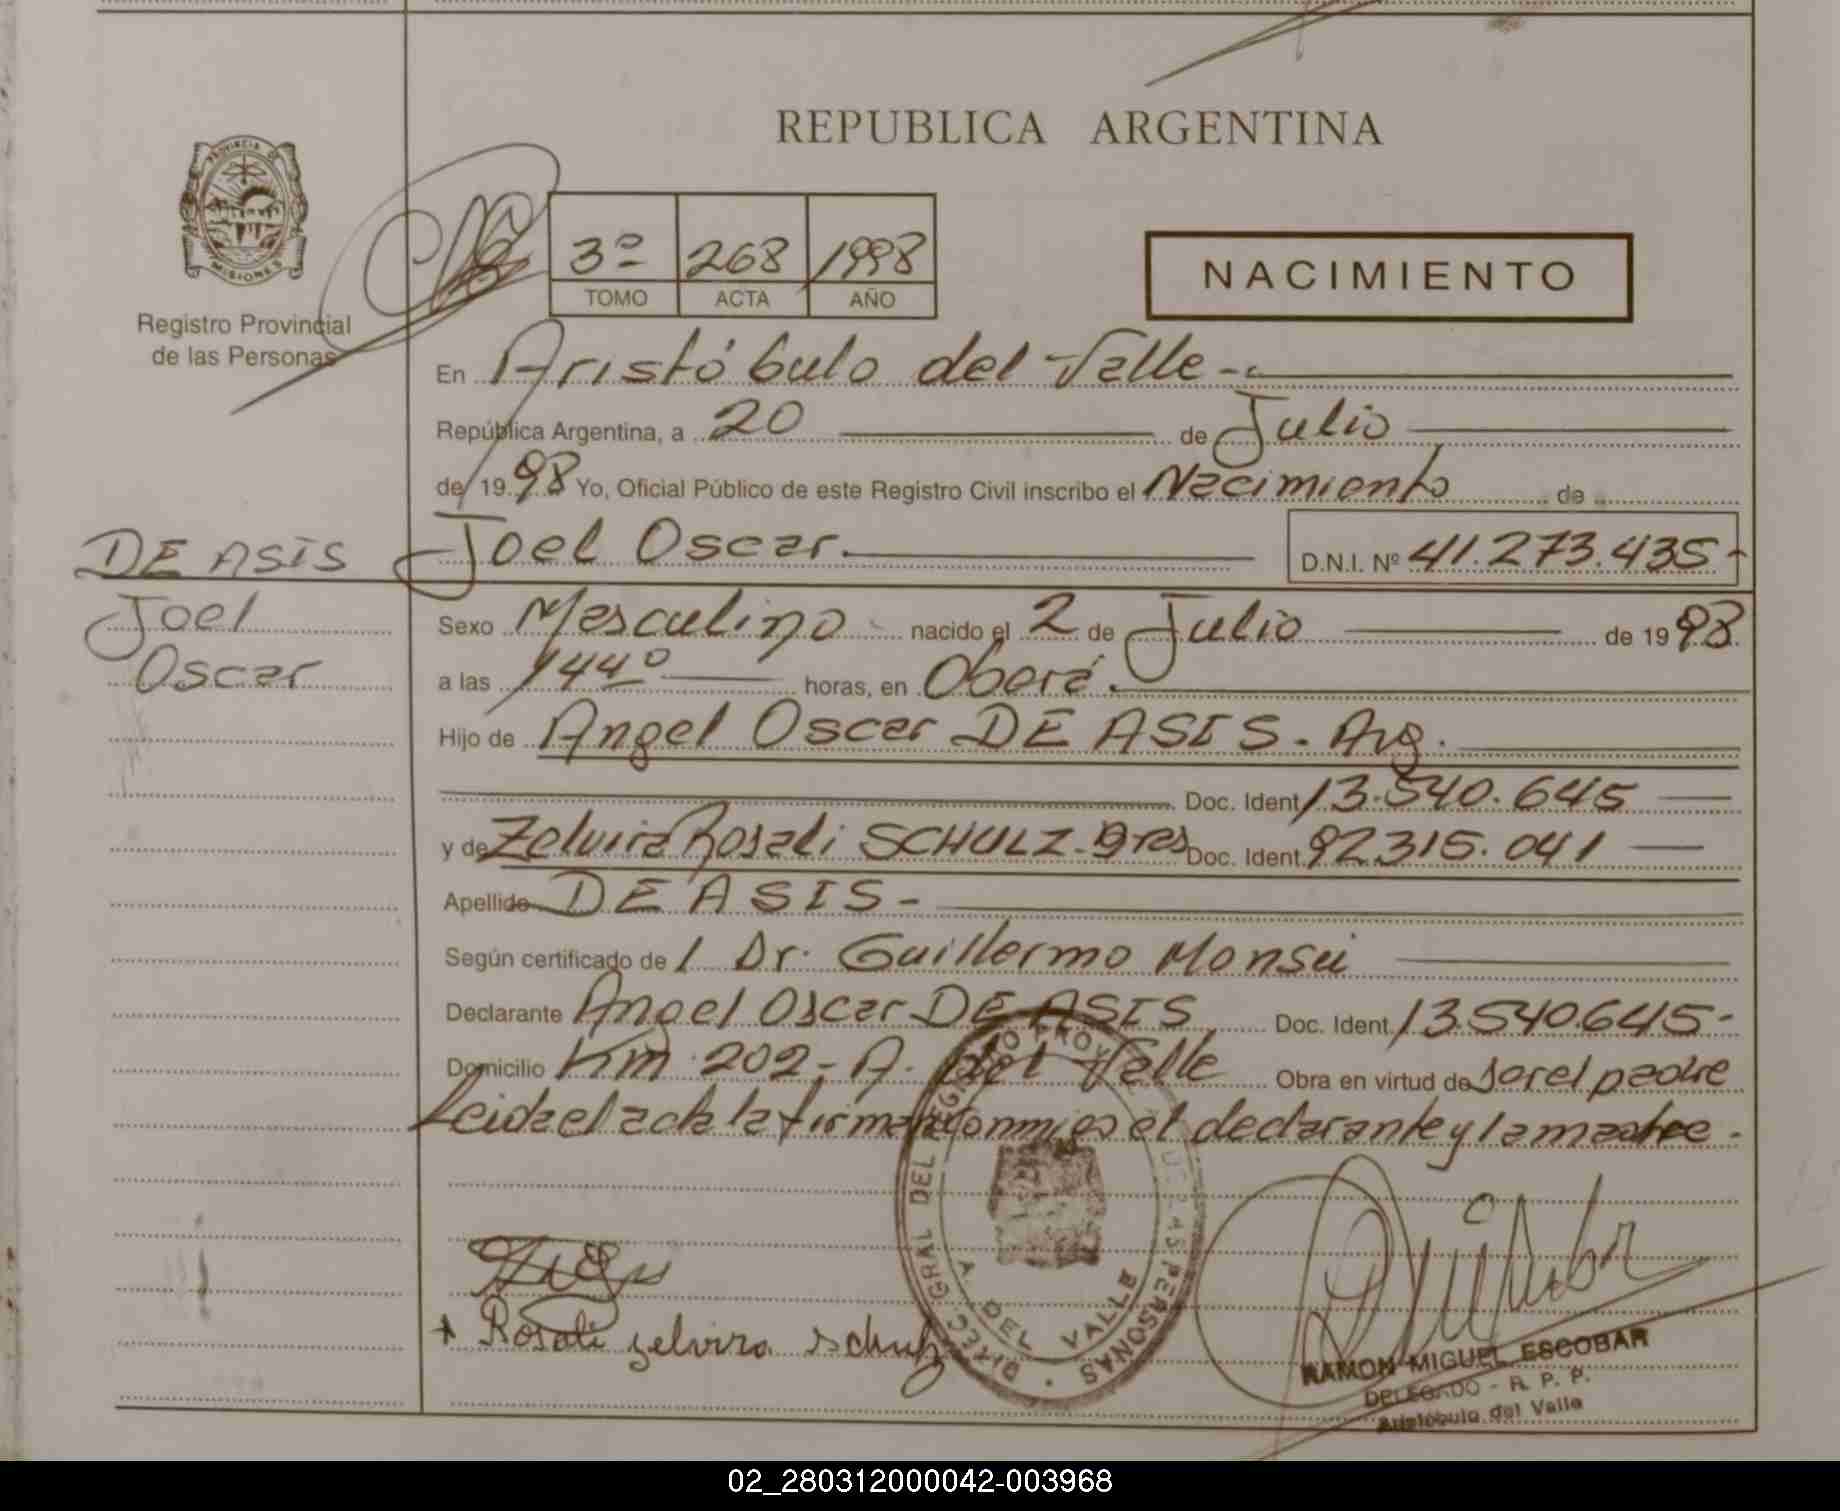 REPUBLICA ARGENTINA
PROVINCIA DE
MISIONES
Registro Provincial
de las Personas
3º 268 1998
TOMO ACTA AÑO
NACIMIENTO
En Aristóbulo del Valle -.
República Argentina, a 20 de Julio
de 1998 Yo, Oficial Público de este Registro Civil inscribo el Nacimiento de
DE ASIS Joel Oscar. D.N.I. Nº 41.273.435-
Joel Sexo Masculino nacido el 2 de Julio de 1998
Oscar a las 1440 horas, en Oberá.
Hijo de Angel Oscar DE ASIS. Arg.
Doc. Ident. 13.540.645
y de Zelvira Rosali SCHULZ. Doc. Ident. 92315.041
Apellido DE ASIS -
Según certificado de 1 Dr. Guillermo
Declarante Angel Oscar DE ASIS Doc. Ident. 13.540.645-
Domicilio Km 202- A. del Valle Obra en virtud de ser el padre
Leida el acta la firman conmigo el declarante y la madre.
DIREC. GRAL DEL REGISTRO PROV. DE LAS PERSONAS
A. DEL VALLE
Rosali zelvira schulz
RAMON MIGUEL ESCOBAR
DELEGADO - R. P. P.
Aristóbulo del Valle
02_280312000042-003968